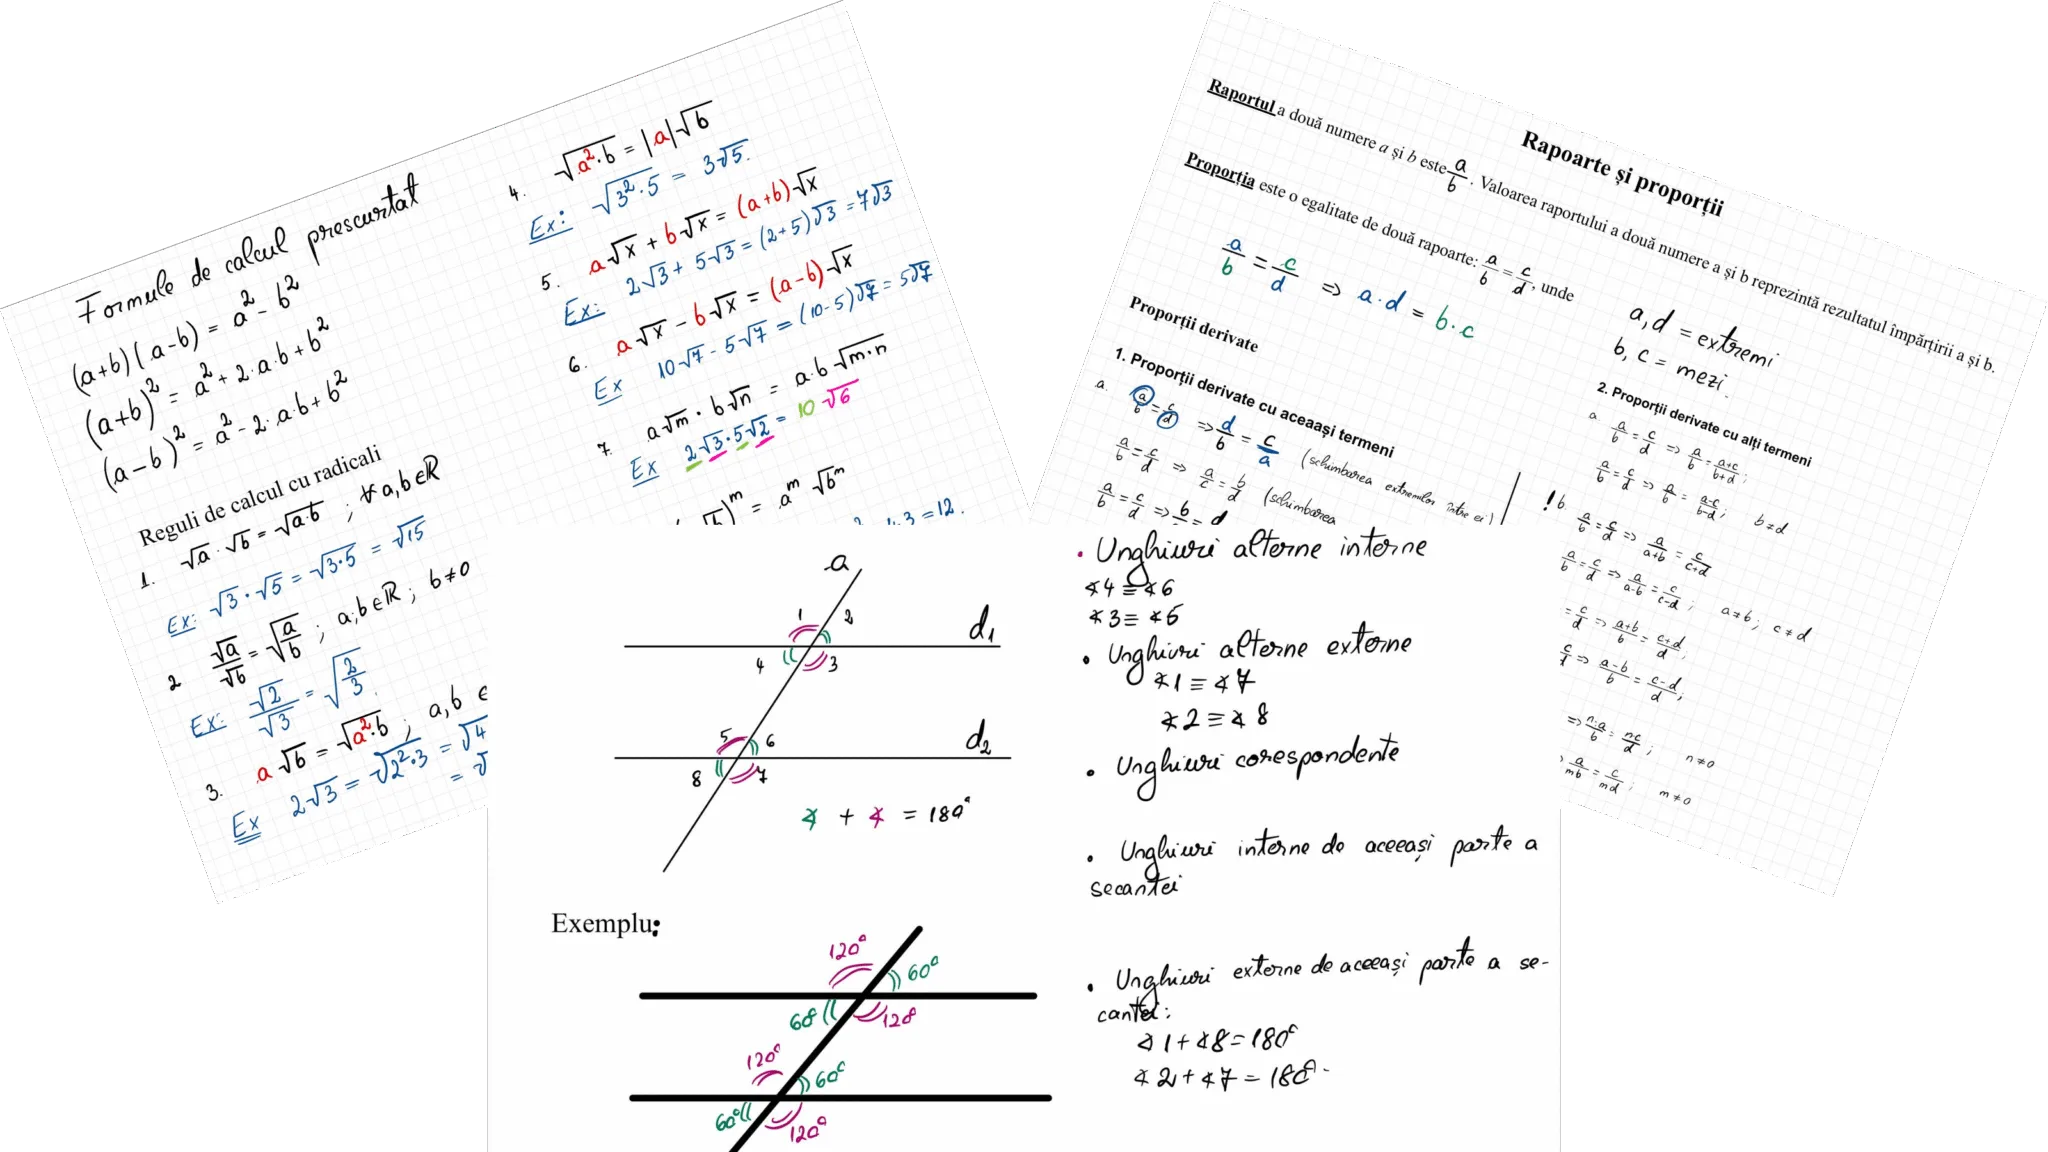 Formule de calcul prescurtat
(a+b)(a-b) = a² - b²
(a+b)² = a² + 2·a·b + b²
(a-b)² = a² - 2·a·b + b²
Reguli de calcul cu radicali
1. √a · √b = √a·b ; ∀ a,b∈ℝ
Ex: √3 · √5 = √3·5 = √15
2 √a/√b = √(a/b) ; a,b∈ℝ ; b≠0
Ex: √2/√3 = √(2/3)
3. a√b = √a²·b ; a,b ∈
Ex 2√3 = √2²·3 = √4
= √
4. √a²·b = |a|√b
Ex: √3²·5 = 3√5.
5. a√x + b√x = (a+b)√x
Ex: 2√3 + 5√3 = (2+5)√3 = 7√3
6. a√x - b√x = (a-b)√x
Ex 10√7 - 5√7 = (10-5)√7 = 5√7
7. a√m · b√n = a·b√m·n
Ex 2√3·5√2 = 10√6
√b)^m = a^m √b^m
4·3 = 12.
Rapoarte și proporții
Raportul a două numere a și b este a/b. Valoarea raportului a două numere a și b reprezintă rezultatul împărțirii a și b.
Proporția este o egalitate de două rapoarte: a/b = c/d, unde
a/b = c/d ⇒ a·d = b·c
a,d = extremi
b, c = mezi.
Proporții derivate
1. Proporții derivate cu aceeași termeni
a. a/b = c/d ⇒ d/b = c/a (schimbarea extremilor între ei)
a/b = c/d ⇒ a/c = b/d (schimbarea
a/b = c/d ⇒ b = d
2. Proporții derivate cu alți termeni
a a/b = c/d ⇒ a/b = a+c/b+d ;
a/b = c/d ⇒ a/b = a-c/b-d ; b≠d
! b. a/b = c/d ⇒ a/a+b = c/c+d
a/b = c/d ⇒ a/a-b = c/c-d ; a≠b ; c≠d
= c/d ⇒ a+b/b = c+d/d ;
c/d ⇒ a-b/b = c-d/d ;
⇒ n·a/b = nc/d ; n≠0
a/mb = c/md ; m≠0
a
1 2 d₁
4 3
5 6 d₂
8 7
∢ + ∢ = 180°
Exemplu:
120° 60°
60° 120
120° 60°
60° 120°
• Unghiuri alterne interne
∢4 ≡ ∢6
∢3 ≡ ∢5
• Unghiuri alterne externe
∢1 ≡ ∢7
∢2 ≡ ∢8
• Unghiuri corespondente
• Unghiuri interne de aceeași parte a
secantei
• Unghiuri externe de aceeași parte a se-
cantei:
∢1 + ∢8 = 180°
∢2 + ∢7 = 180°.